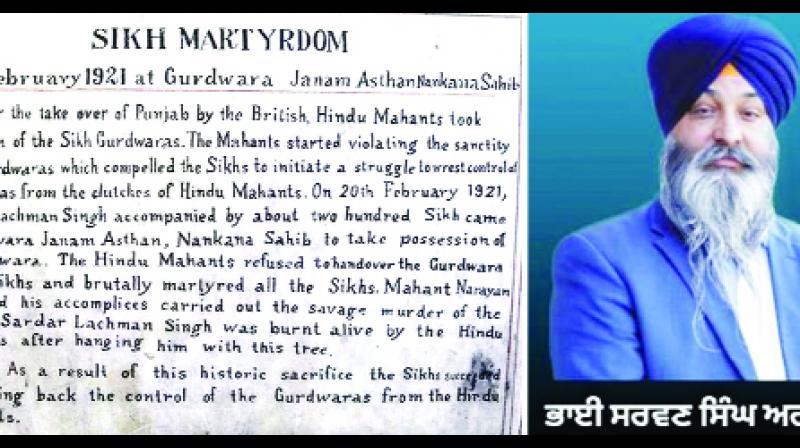 SIKH MARTYRDOM
ebruary 1921 at Gurdwara Janam Asthan Nankana Sahib
r the take over of Punjab by the British, Hindu Mahants took
n of the Sikh Gurdwaras. The Mahants started violating the sanctity
rdwaras which compelled the Sikhs to initiate a struggle to wrest control of
as from the clutches of Hindu Mahants. On 20th February 1921,
Lachman Singh accompanied by about two hundred Sikh came
wara Janam Asthan, Nankana Sahib to take possession of
wara. The Hindu Mahants refused to handover the Gurdwara
ikhs and brutally martyred all the Sikhs. Mahant Narayan
d his accomplices carried out the savage murder of the
Sardar Lachman Singh was burnt alive by the Hindu
s after hanging him with this tree.
As a result of this historic sacrifice the Sikhs succeeded
ing back the control of the Gurdwaras from the Hindu
ts.
ਭਾਈ ਸਰਵਣ ਸਿੰਘ ਅਗ